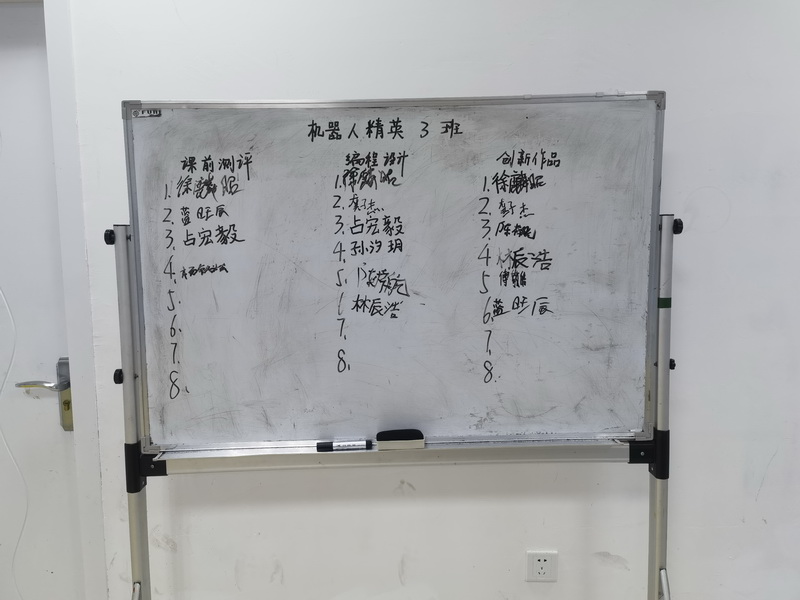 机器人精英3班
课前测评
1.徐麟昭
2.蓝旺辰
3.占宏毅
4.
5.
6.
7.
8.
编程设计
1.徐麟昭
2.杰
3.占宏毅
4.孙汐玥
5.陈
6.林辰浩
7.
8.
创新作品
1.徐麟昭
2.杰
3.陈
4.林辰浩
5
6.蓝旺辰
7.
8.